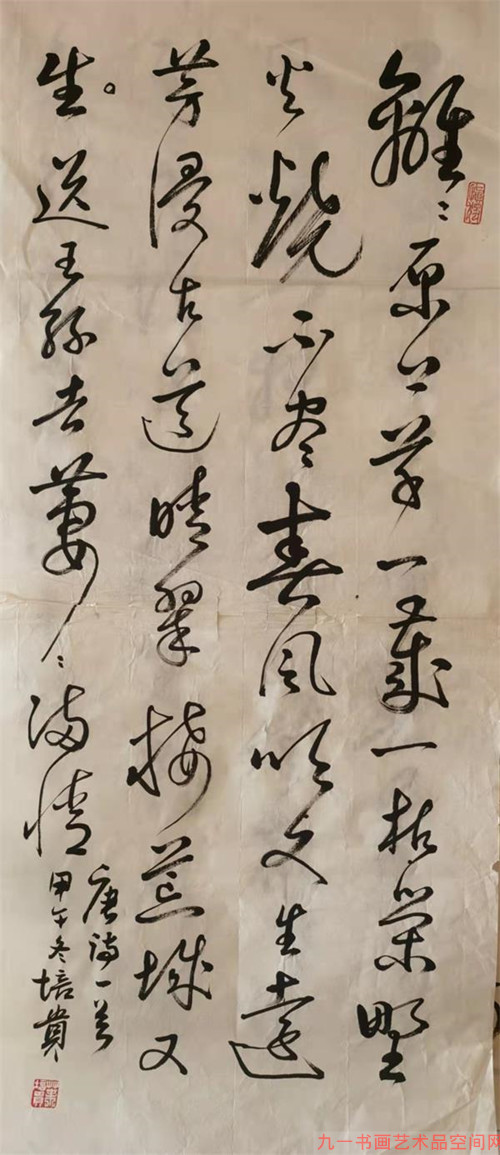 離〻原上草一歲一枯榮野
火燒不盡春風吹又生遠
芳侵古道晴翠接荒城又
生。送王孫去萋〻滿情
唐詩一首
甲午冬培貴
九一书画艺术品空间网